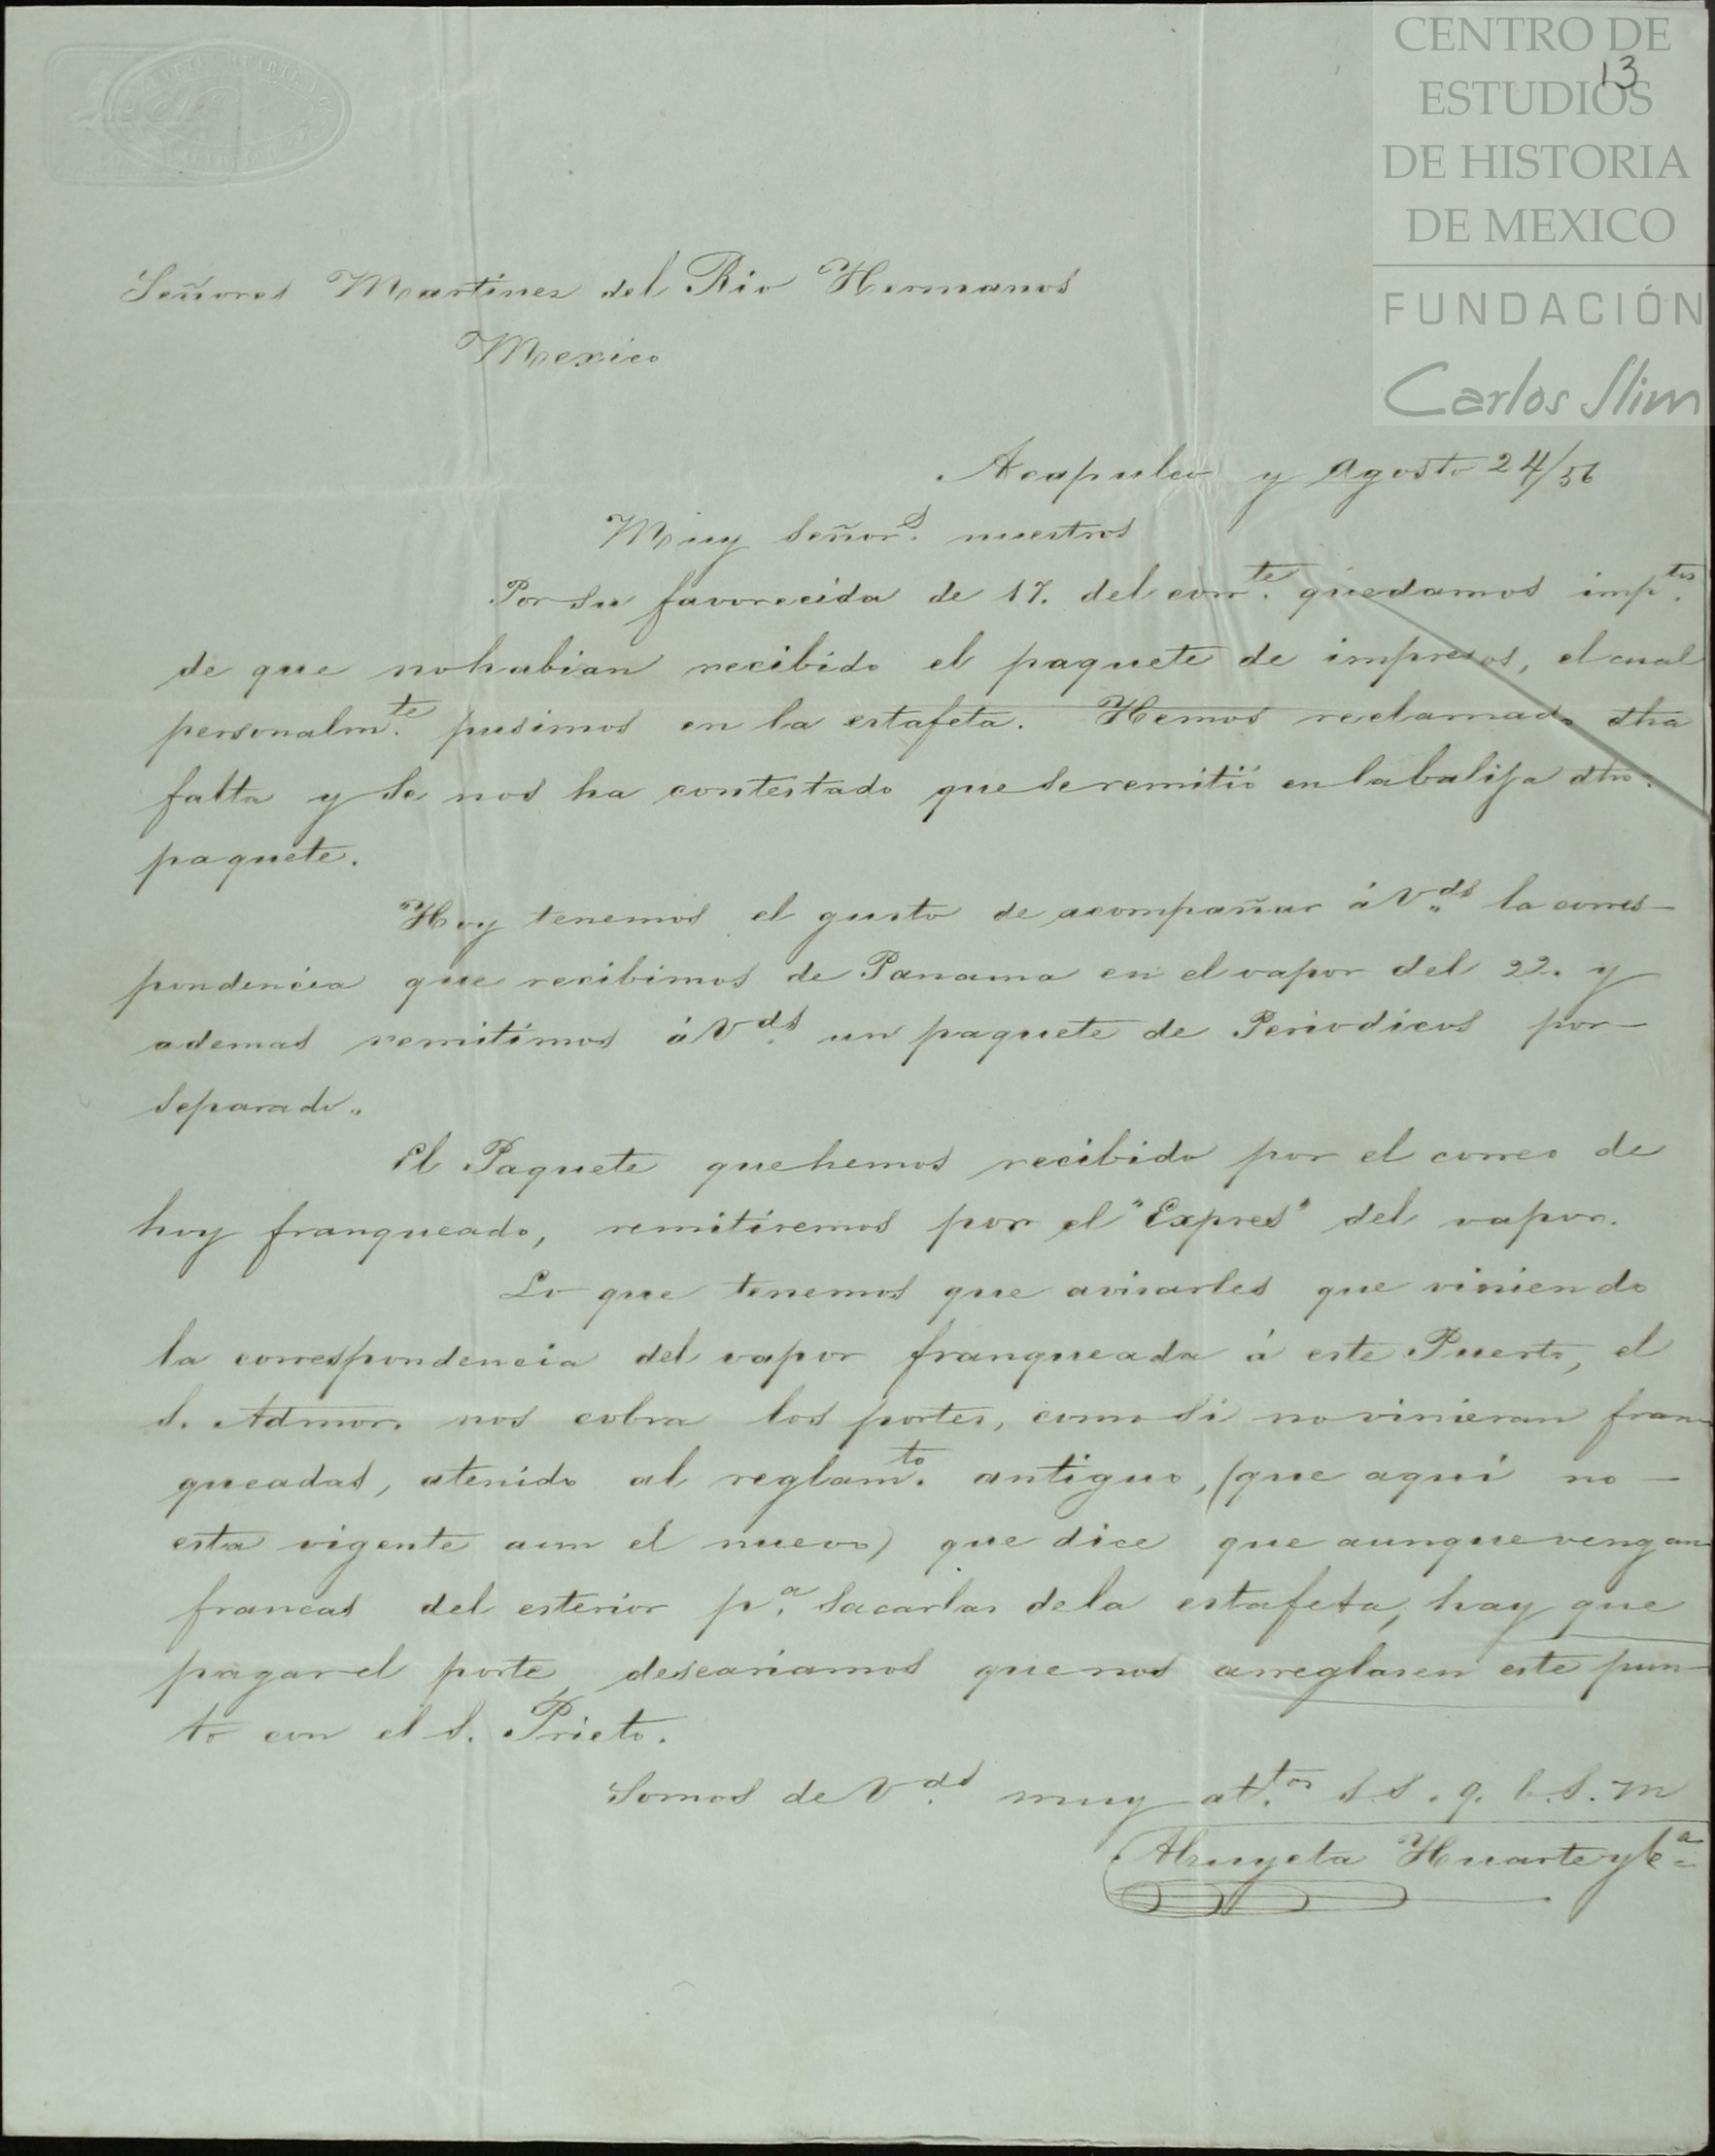 CENTRO DE
ESTUDIOS
DE HISTORIA
DE MEXICO
FUNDACIÓN
Carlos Slim
13
Señores Martinez del Rio Hermanos
Mexico
Acapulco y Agosto 24/56
Muy Señor.s nuestros
Por su favorecida de 17. del corr.te quedamos imp.tos
de que no habian recibido el paquete de impresos, el cual
personalm.te pusimos en la estafeta. Hemos reclamado dha
falta y se nos ha contestado que se remitió en la balija dho.
paquete.
Hoy tenemos el gusto de acompañar á V.ds la corres-
pondencia que recibimos de Panama en el vapor del 22. y
ademas remitimos á V.ds un paquete de Periodicos por-
separado..
El Paquete que hemos recibido por el correo de
hoy franqueado, remitiremos por el "Expres" del vapor.
Lo que tenemos que avisarles que viniendo
la correspondencia del vapor franqueada á este Puerto, el
S. Admor. nos cobra los portes, como si no vinieran fran-
queadas, atenido al reglam.to antiguo, (que aqui no -
esta vigente aun el nuevo) que dice que aunque vengan
francas del esterior p.a sacarlas de la estafeta, hay que
pagar el porte, deseariamos que nos arreglasen este pun-
to con el S. Prieto.
Somos de V.ds muy at.tos s. s. q. b. s. m
Alzuyeta Huarte y C.a